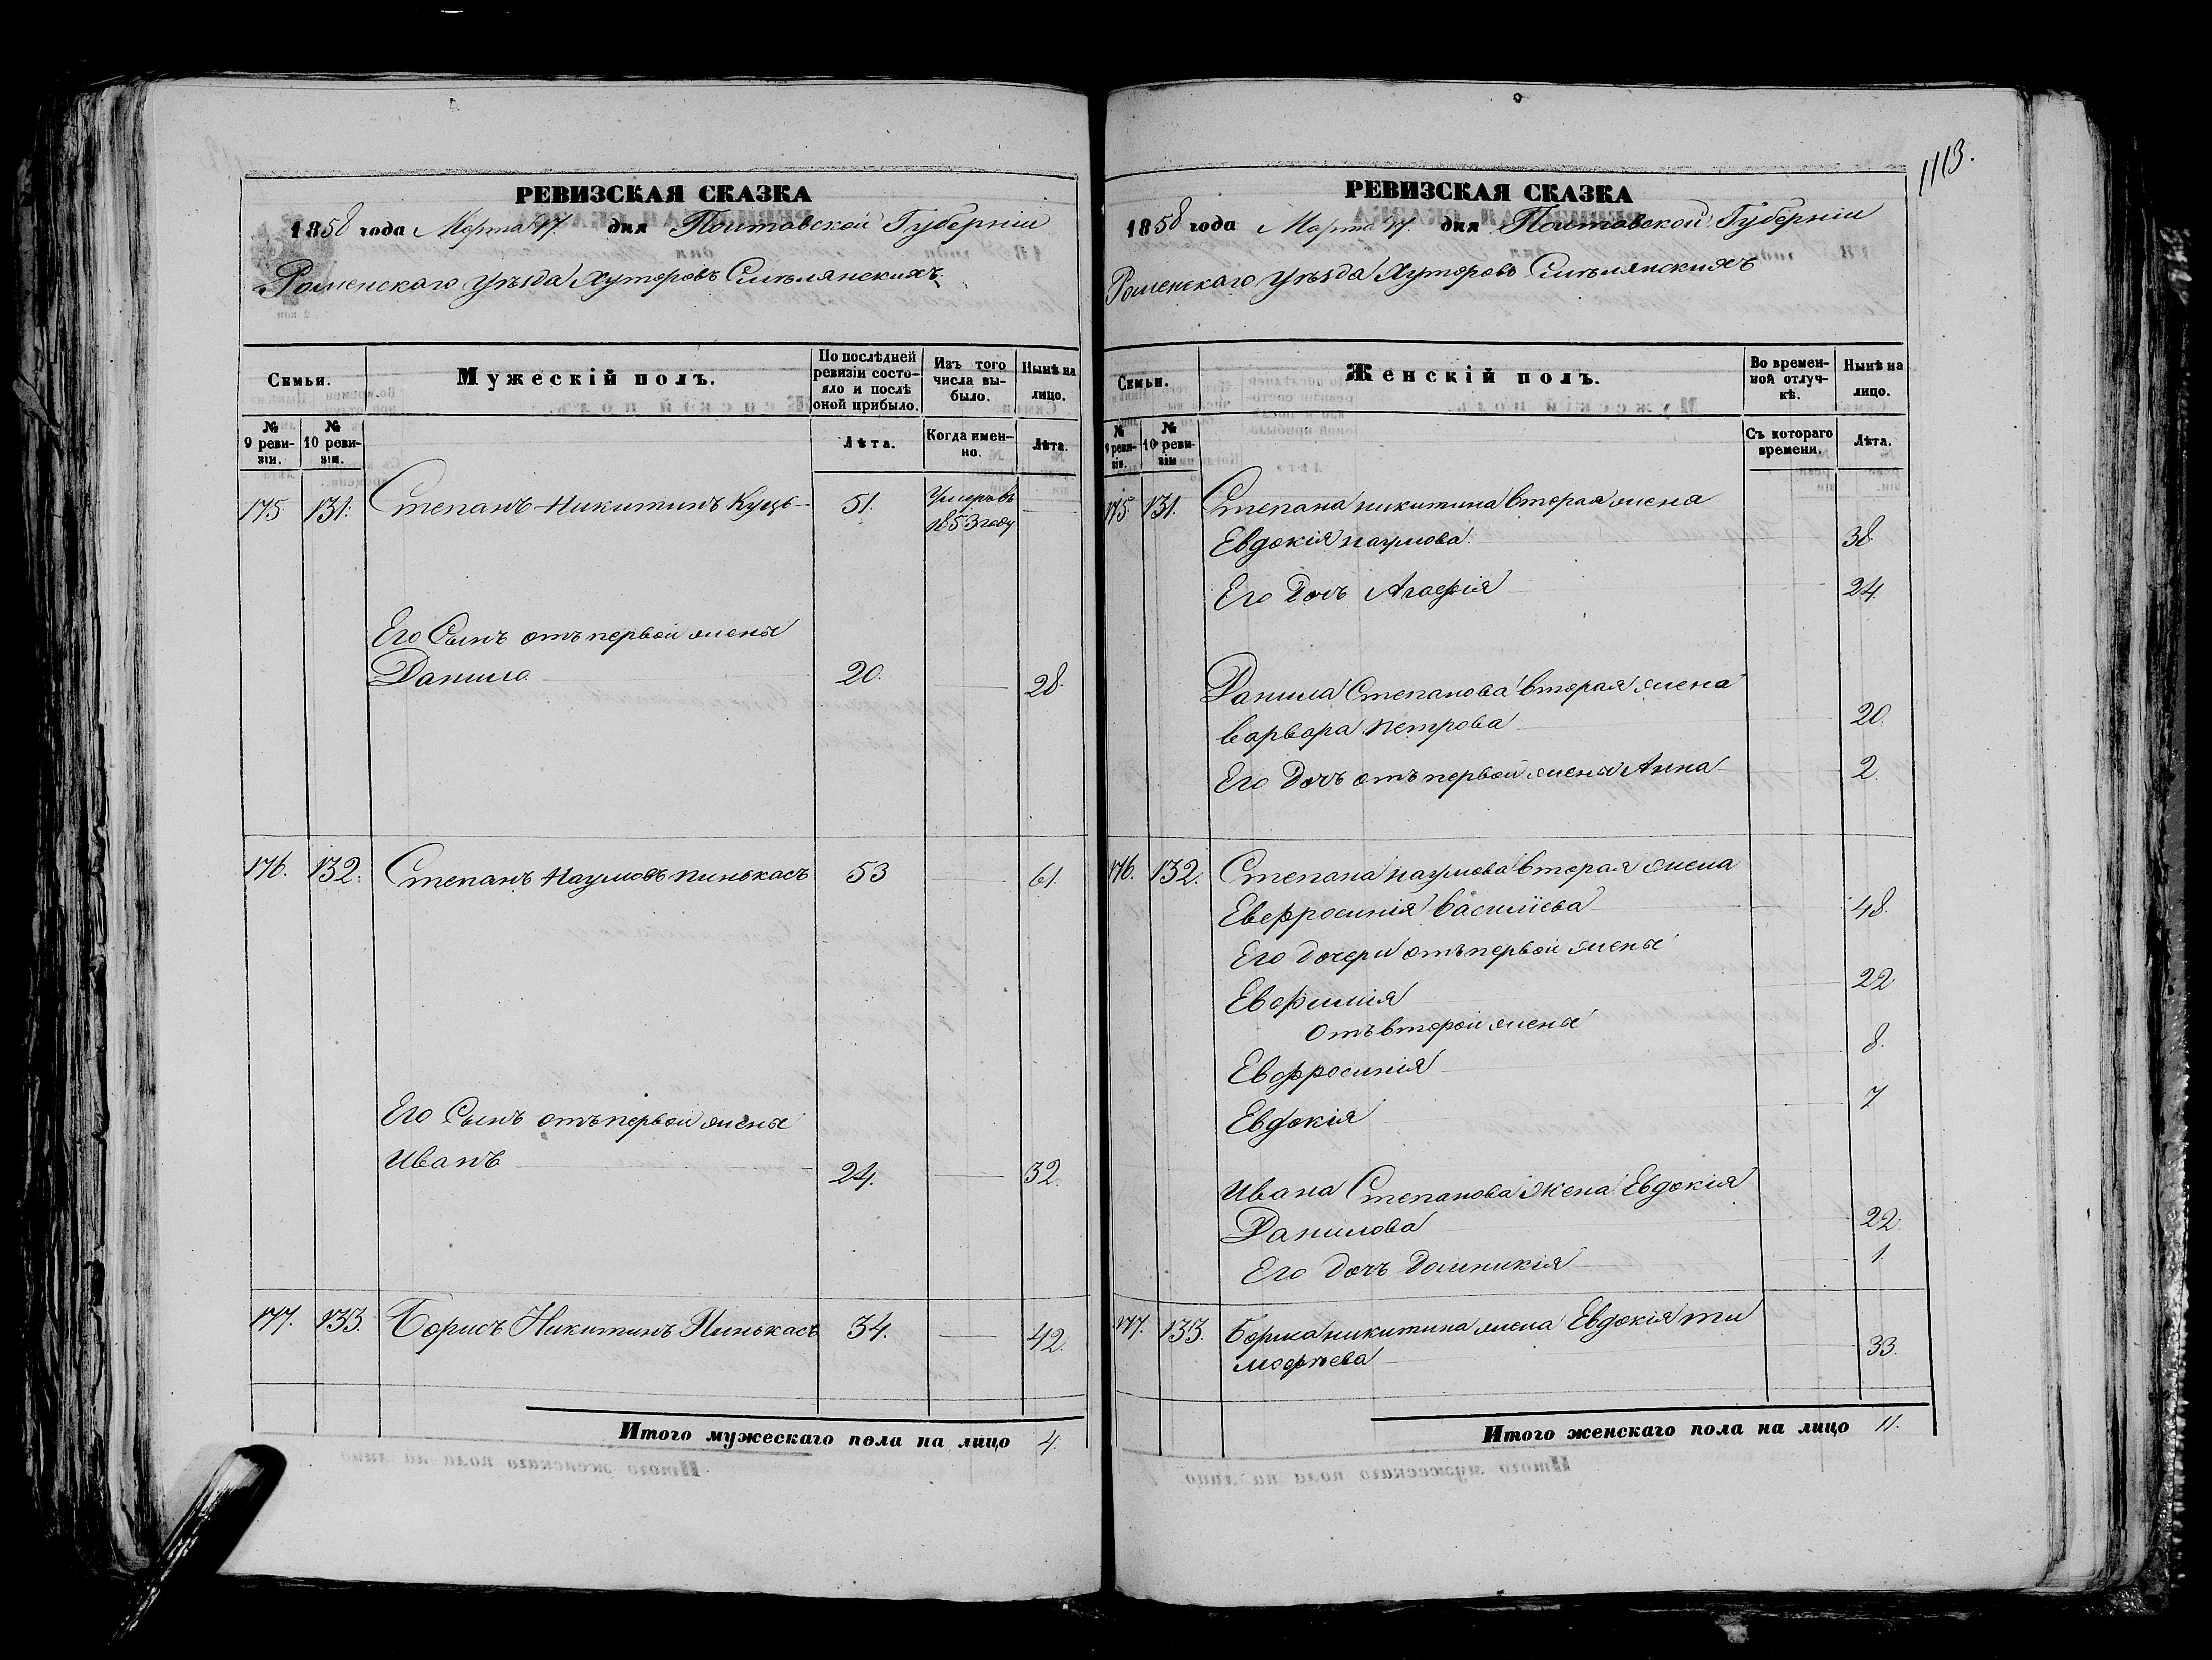 1113.
РЕВИЗСКАЯ СКАЗКА
1858 года Марта 17. дня Полтавской Губерніи
Роменскаго уѣзда Хуторовъ Смѣлянскихъ
Семьи.
Мужескій полъ.
По послѣдней ревизіи состояло и послѣ оной прибыло.
Изъ того числа выбыло.
Нынѣ на лицо.
№ 9 ревизіи.
№ 10 ревизіи.
Лѣта.
Когда именно.
Лѣта.
175 131. Степанъ Никитинъ Куць 51. Умеръ въ
1853 году
Его Сынъ отъ первой жены
Данило 20. 28.
176. 132. Степанъ Наумовъ пинькасъ 53 61.
Его Сынъ отъ первой жены
Иванъ 24. 32.
177. 133. Борисъ Никитинъ Пинькасъ 34. 42.
Итого мужескаго пола на лицо 4.
РЕВИЗСКАЯ СКАЗКА
1858 года Марта 17. дня Полтавской Губерніи
Роменскаго уѣзда Хуторовъ Смѣлянскихъ
Семьи.
Женскій полъ.
Во временной отлучкѣ.
Нынѣ на лицо.
№ 9 ревизіи.
№ 10 ревизіи
Съ котораго времени.
Лѣта.
175 131. Степана никитина вторая жена
Евдокія наумова 38.
Его Дочъ Агафія 24.
Данила Степанова вторая жена
варвара петрова 20.
Его Дочъ отъ первой жены Анна 2.
176. 132. Степана наумова вторая жена
Евефросинія василіева 48.
Его дочери отъ первой жены
Евфимія 22
Отъ второй жены
Евфросинія 8.
Евдокія 7
Ивана Степанова Жена Евдокія
Данилова 22.
Его дочъ Домникія 1.
177. 133. Бориса никитина жена Евдокія ти
мофѣева 33.
Итого женскаго пола на лицо 11.